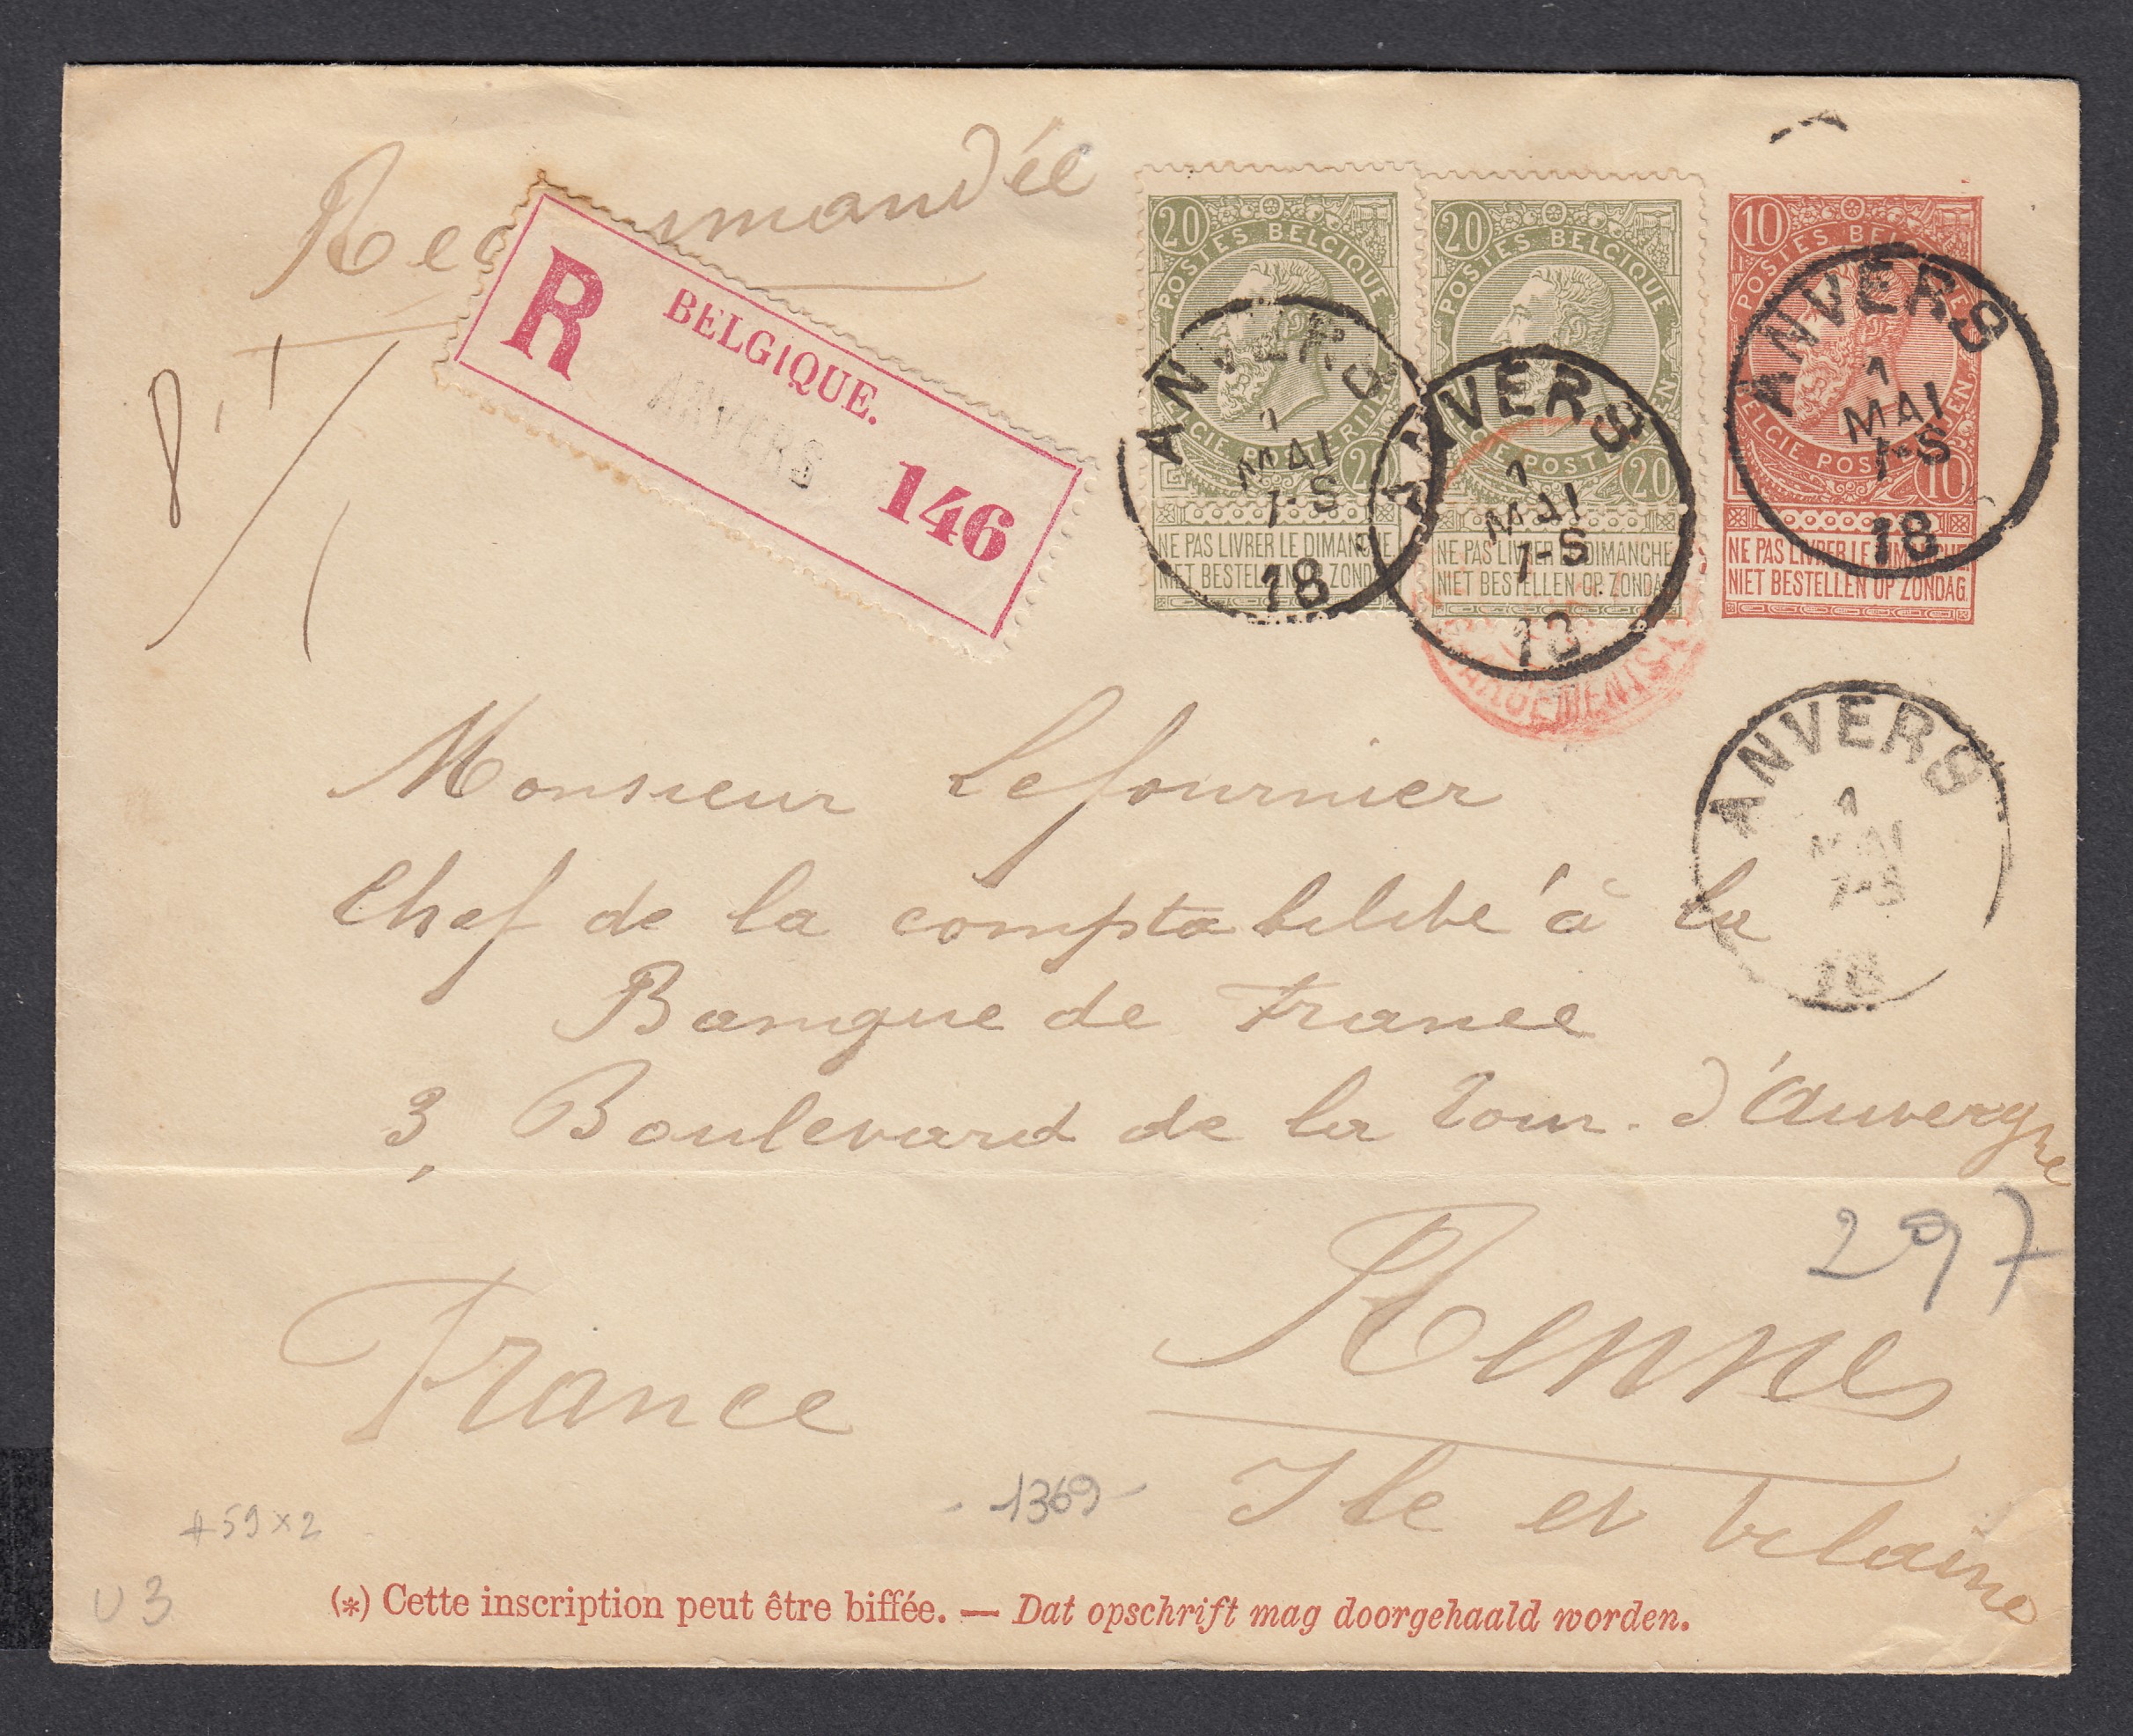 Recommandée
R BELGIQUE.
ANVERS
146
20 20
POSTES BELGIQUE
BELGIE POSTERIJEN
20
NE PAS LIVRER LE DIMANCHE
NIET BESTELLEN OP ZONDAG
ANVERS
1
MAI
7-S
18
20
POSTES BELGIQUE
20
NE PAS LIVRER LE DIMANCHE
NIET BESTELLEN OP ZONDAG
ANVERS
1
MAI
7-S
18
CHARGEMENTS
10
POSTES BELGIQUE
BELGIE POSTERIJEN
10
NE PAS LIVRER LE DIMANCHE
NIET BESTELLEN OP ZONDAG.
ANVERS
1
MAI
7-S
18
ANVERS
1
MAI
7-S
18
Monsieur Lefournier
Chef de la comptabilité à la
Banque de France
3, Boulevard de la Tour d'Auvergne
297
France Rennes
Ile et Vilaine
-1369-
#59x2
U3
(*) Cette inscription peut être biffée. — Dat opschrift mag doorgehaald worden.